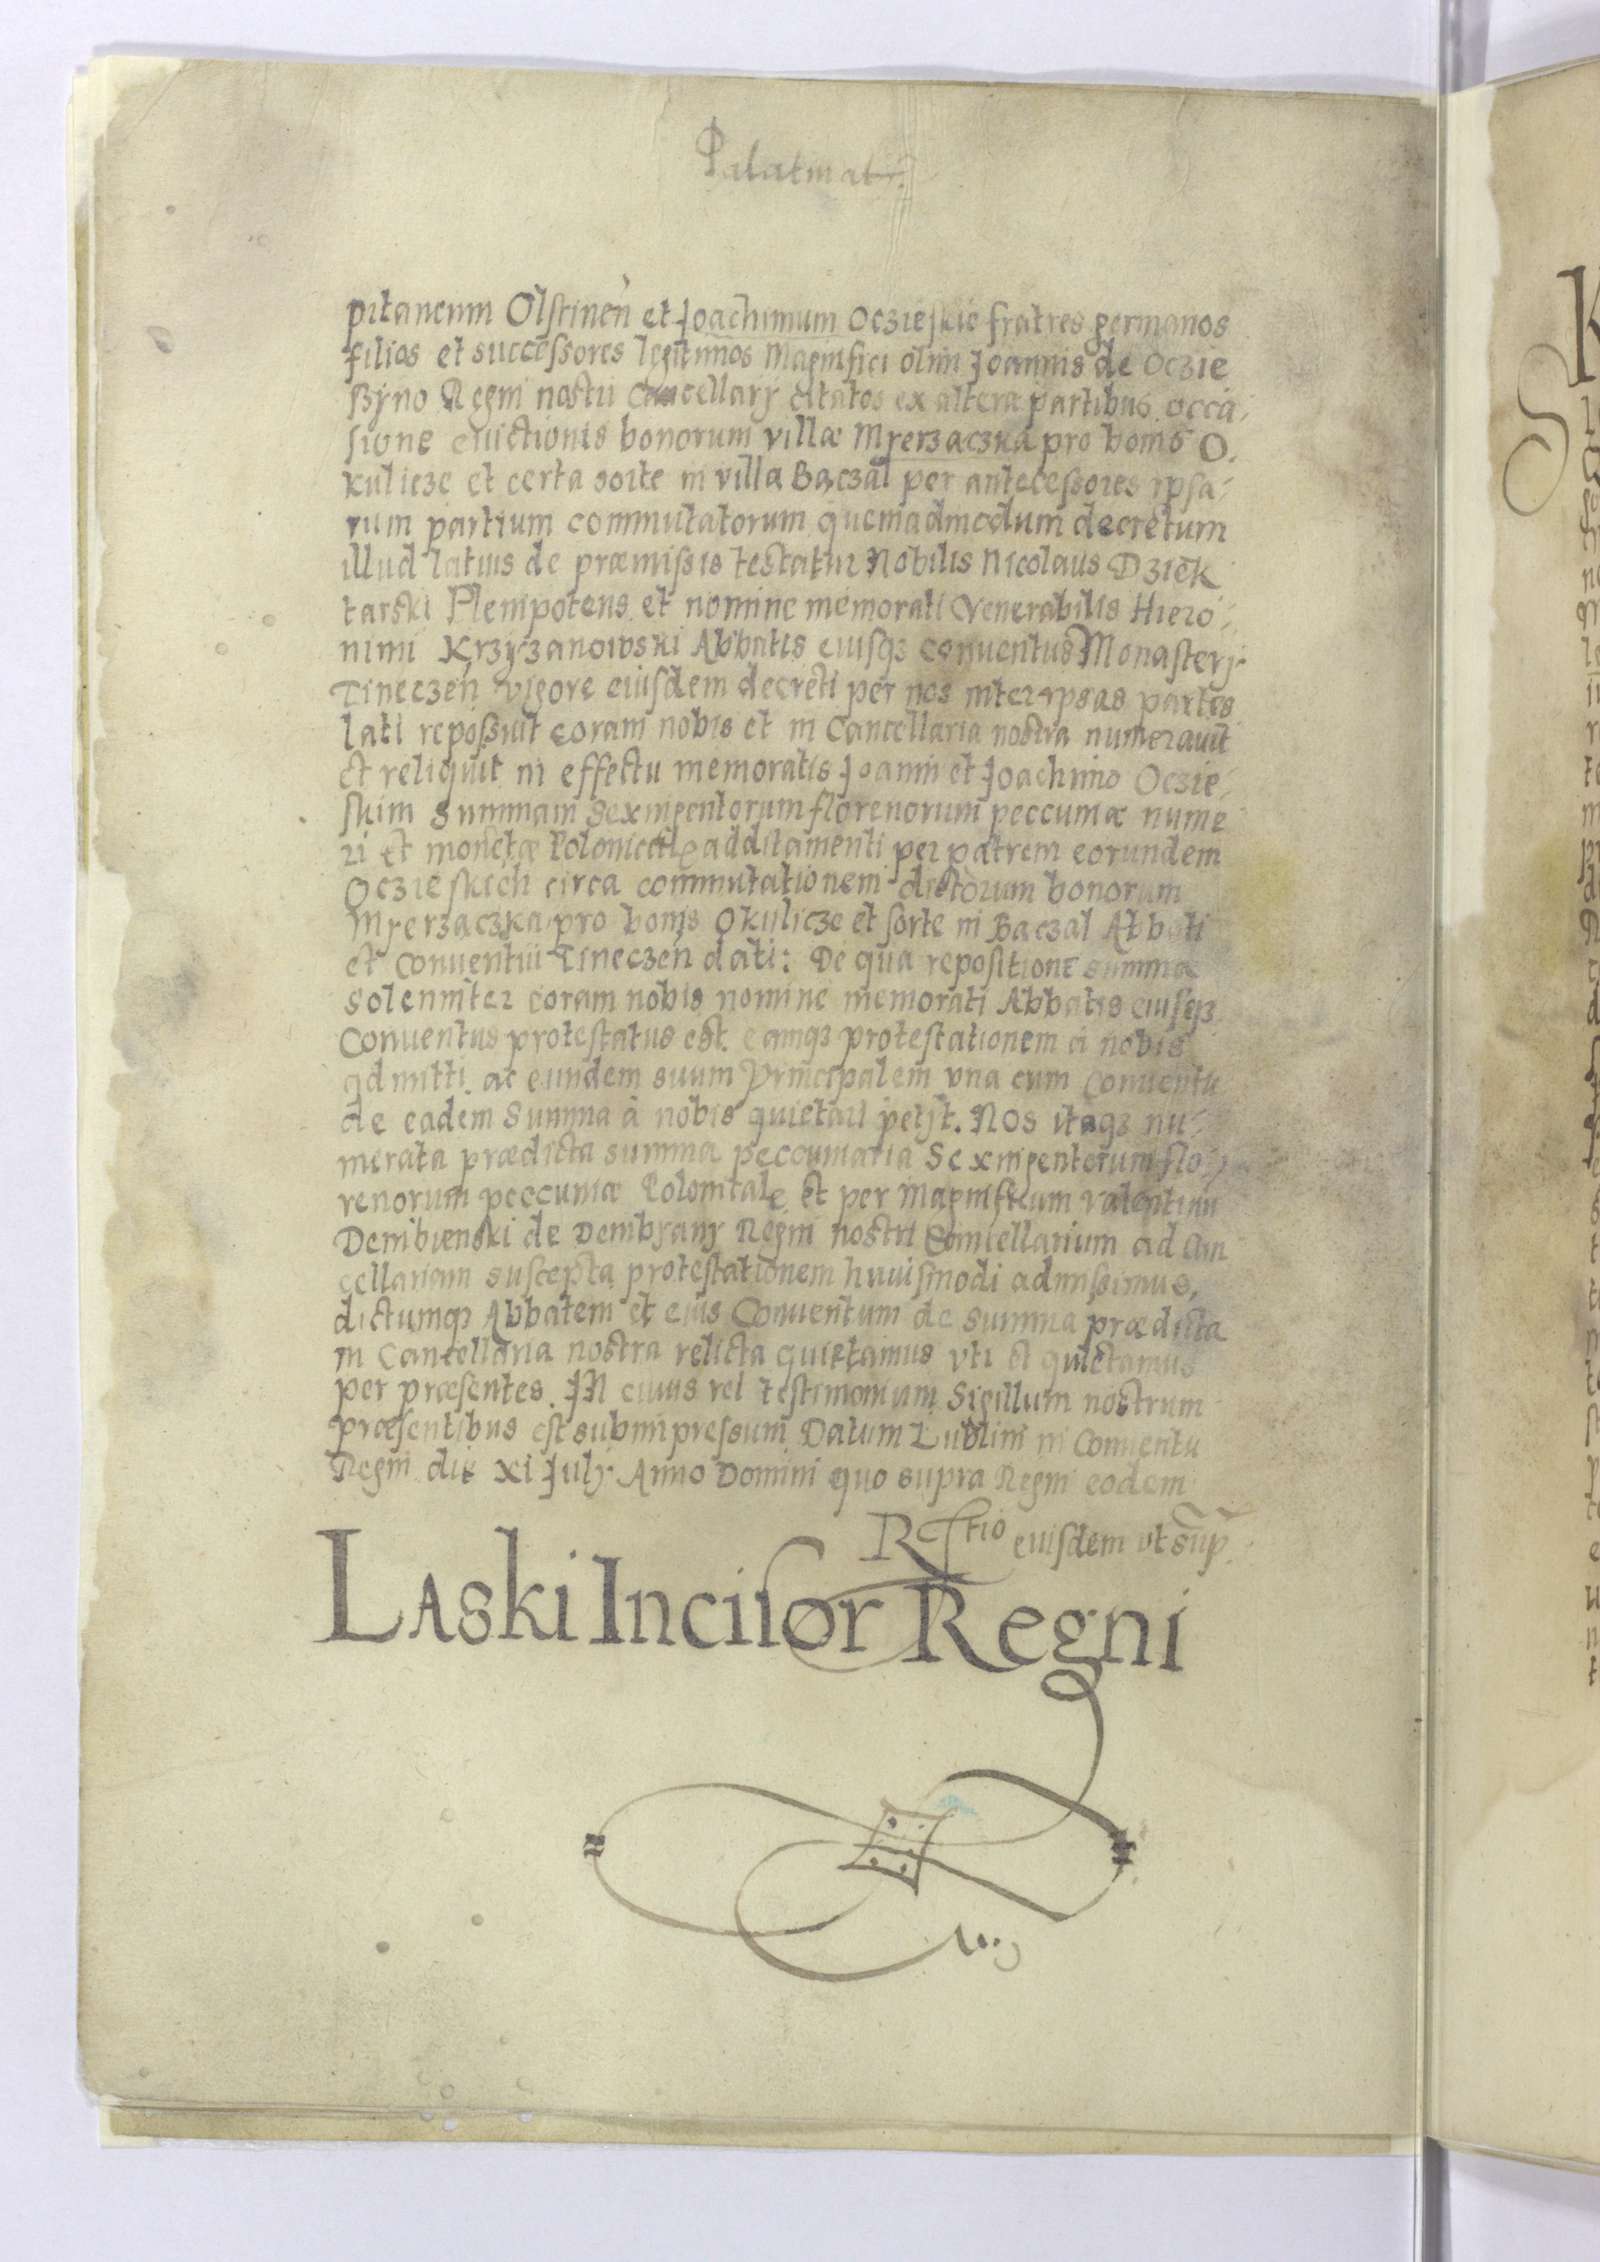 Palatinat
pitaneum Olstinen et Joachimum Oczieskie fratres germanos
filios et successores legitimos Magnifici olim Joannis de Oczie
szyno Regni nostri Cancellarij citatos ex altera partibus occa-
sione euictionis bonorum villæ Myerzaczka pro bonis O.
kulicze et certa sorte in villa Baczal per antecessores ipsa-
rum partium commutatorum quemadmodum decretum
illud latius de præmissis testatur Nobilis Nicolaus Dziek
tarski Plenipotens et nomine memorati Venerabilis Hiero-
nimi Krzyzanowski Abbatis eiusqz conuentus Monasterij
Tineczen vigore eiusdem decreti per nos inter ipsas partes
lati reposuit coram nobis et in Cancellaria nostra numerauit
et reliquit in effectu memoratis Joanni et Joachimo Oczie-
skim summam sexingentorum florenorum peccuniæ nume
ri et monetæ Polonicalis additamenti per patrem eorundem
Oczieskich circa commutationem dictorum bonorum
Myerzaczka pro bonis Okulicze et sorte in Baczal Abbati
et Conuentui Tineczen dati: De qua repositione summæ
solenniter coram nobis nomine memorati Abbatis eiusqz
Conuentus protestatus est. eamqz protestationem à nobis
admitti. ac eundem suum Principalem vna cum Conuentu
de eadem Summa à nobis quietari petijt. Nos itaqz nu-
merata prædicta summa peccuniaria Sexingentorum flo-
renorum peccuniæ Polonicale et per Magnificum Valentinu
Dembienski de Dembyany Regni nostri Cancellarium ad Can
cellariam suscepta protestationem huiusmodi admisimus,
dictumqz Abbatem et eius Conuentum de summa prædicta
in Cancellaria nostra relicta quietamus vti et quietamus
per præsentes. In cuius rei testimonium Sigillum nostrum
præsentibus est subimpressum Datum Lublini in Conuentu
Regni die xi Julij Anno Domini quo supra Regni eodem
Rtio eiusdem vt sup.
Laski Incisor Regni